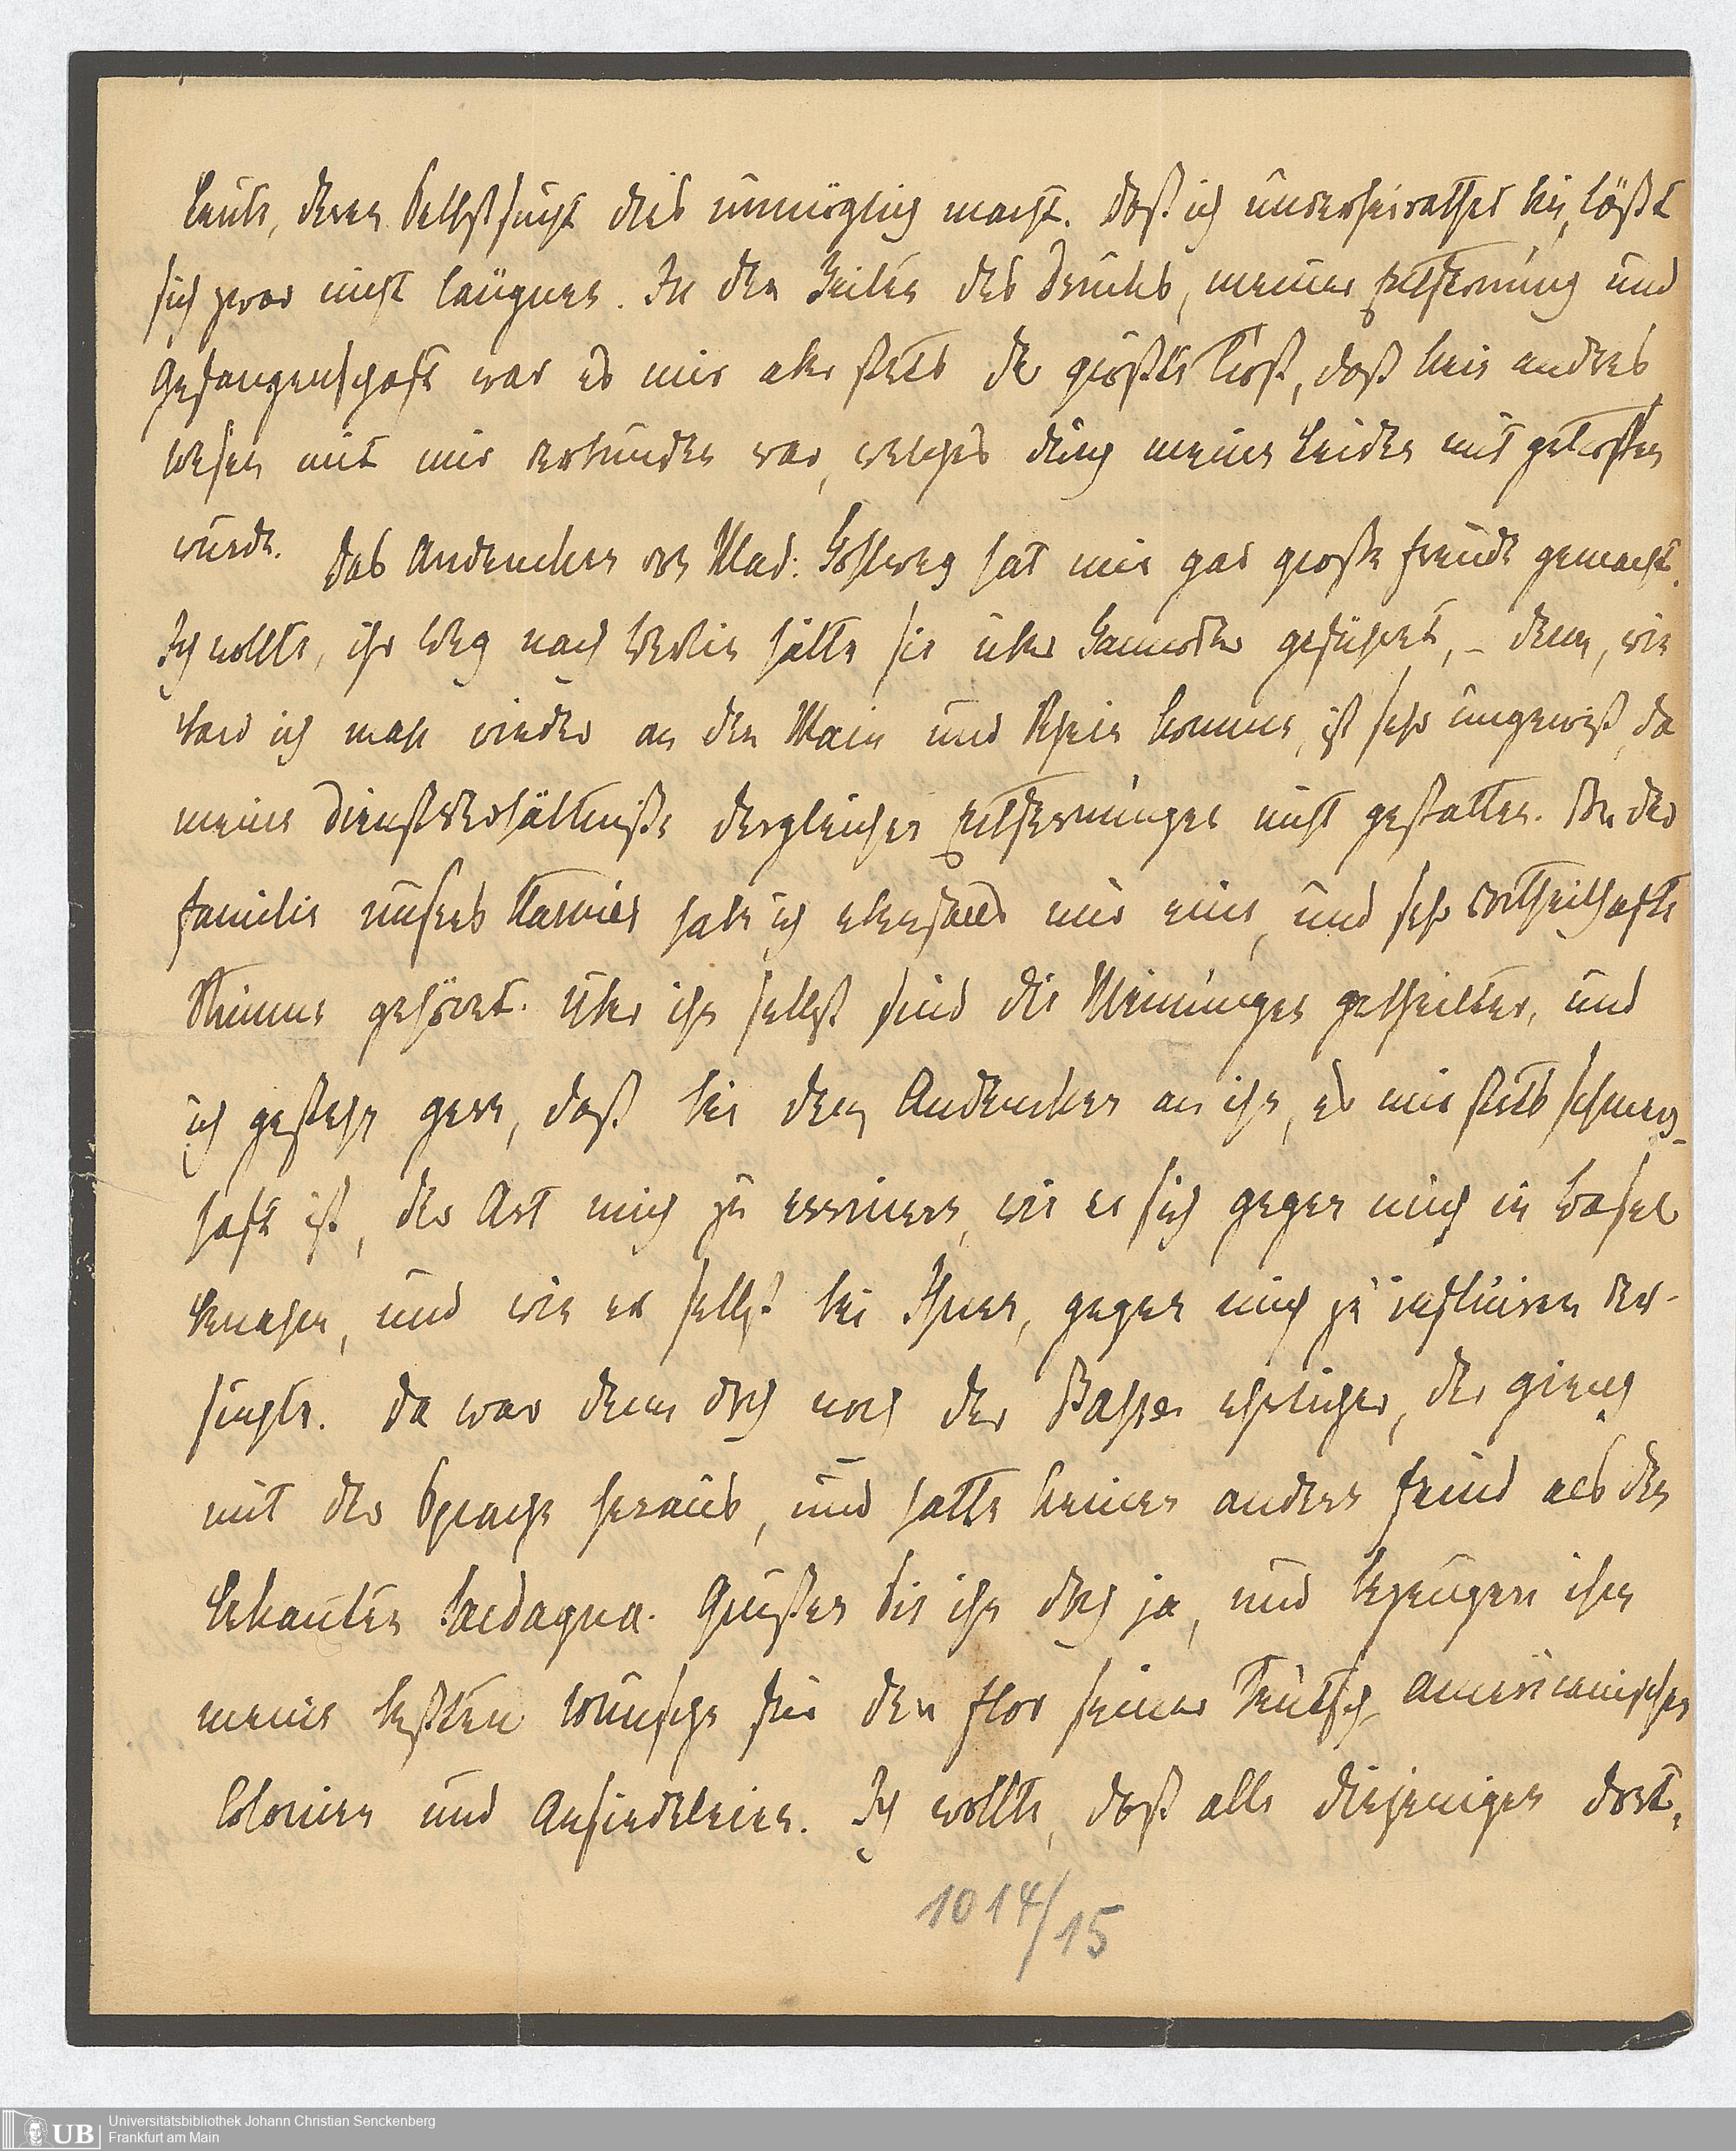 Leute, deren Selbstsucht dies unmöglich macht. Daß ich unverheirathet bin, läßt
sich zwar nicht läugnen. In den Zeiten des Drucks, meiner Entfernung und
Gefangenschaft war es mir aber stets der größte Trost, daß kein andres
Wesen mit mir verbunden war, welches durch meine Leiden mit getroffen
würde. Das Andencken von Mad: hat mir gar große Freude gemacht.
Ich wollte, ihr Weg nach Berlin hätte sie über Hannover geführet, – denn, wie
bald ich mahl wieder an den Main und Rhein komme, ist sehr ungewiß, da
meine Dienstverhältniße dergleichen Entfernungen nicht gestatten. Von der
Familie unsers habe ich ebenfalls nur eine, und sehr vortheilhafte
Stimme gehöret. Über ihn selbst sind die Meinungen getheilter, und
ich gestehe gern, daß bei dem Andencken an ihn, es mir stets schmerz-
haft ist, der Art mich zu erinnern, wie er sich gegen mich in Basel
benahm, und wie er selbst bei Ihnen, gegen mich zu influiren ver-
suchte. Da war denn doch noch der ehrlicher, der gieng
mit der Sprache heraus, und hatte keinen andern Feind als den
bekannten Grüßen Sie ihn doch ja, und bezeugen ihm
meine besten Wünsche für den Flor seiner Teutsch americanischen
Colonien und Ansiedeleien. Ich wollte, daß alle diejenigen dort,
1014/15
UB
Universitätsbibliothek Johann Christian Senckenberg
Frankfurt am Main